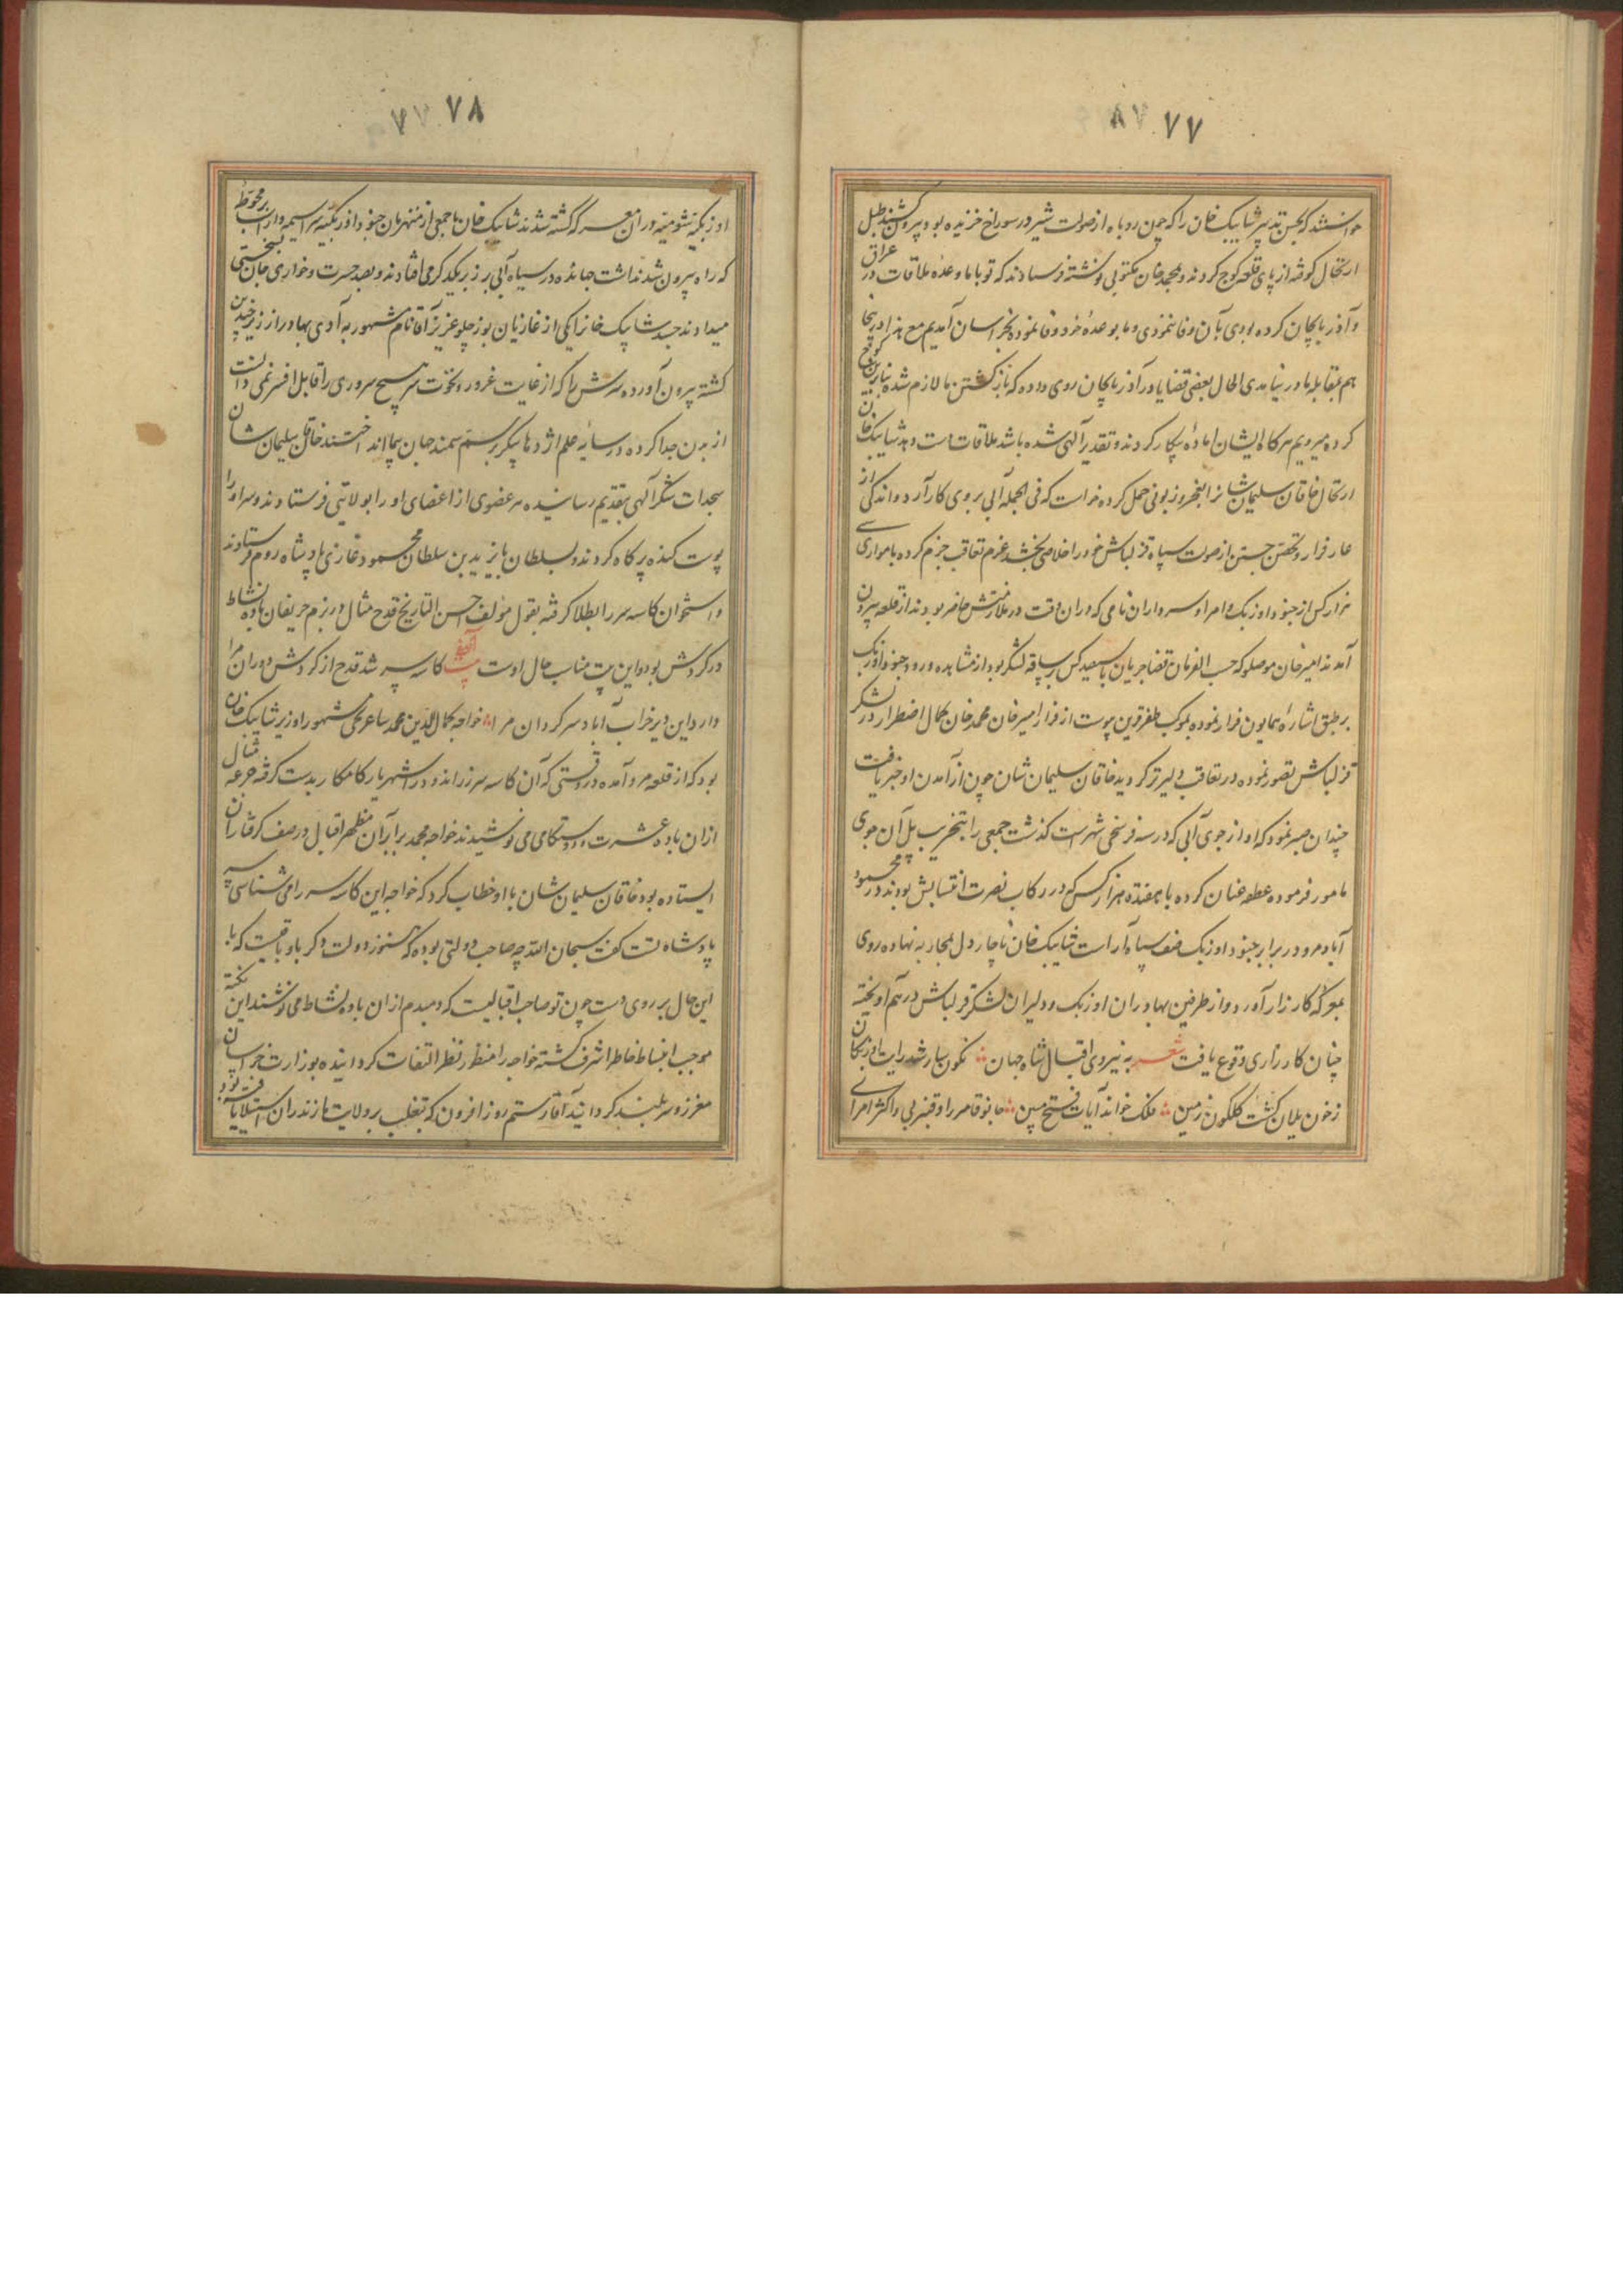 ۷۷
خواستند که بحسن تدبیر شایبک خان را که چون روباه از صولت شیر در سوراخ خزیده بود بیرون کشند طبل
ارتحال کوفته از پای قلعه کوچ کردند و بمحمد خان مکتوبی نوشته فرستادند که تو با ما وعدهٔ ملاقات در عراق
و آذربایجان کرده بودی بآن وفا ننمودی و ما بوعدهٔ خود وفا نموده بخراسان آمدیم مع هذا در اینجا
هم بمقابلهٔ ما در نیامدی الحال بعضی قضایا در آذربایجان روی داده که بازگشتن ما لازم شده بنابرین کوچ
کرده میرویم هرگاه ایشان آمادهٔ پیکار گردند و تقدیر آلهی شده باشد ملاقات دست دهد شایبک خان
ارتحال خاقان سلیمان شانرا بعجز و زبونی حمل کرده خواست که فی الجمله آبی بر روی کار آرد و اندکی از
عار فرار و تحصن جستن از صولت سپاه قزلباش خود را خلاصی بخشد عزم تعاقب جزم کرده با موازی سی
هزار کس از جنود اوزبک و امرا و سرداران نامی که در ان وقت در ملازمتش حاضر بودند از قلعه بیرون
آمدند امیر خان موصلو که حسب الفرمان قضا جریان با سیصد کس بر ساقهٔ لشکر بود از مشاهده ورود جنود اوزبک
بر طبق اشارهٔ همایون فرار نموده بموکب ظفر قرین پیوست از فرار امیر خان محمد خان کمال اضطرار در لشکر
قزلباش تصور نموده در تعاقب دلیرتر گردید خاقان سلیمان شان چون از آمدن او خبر یافت
چندان صبر نمود که او از جوی آبی که در سه فرسخی شهر است گذشت جمعی را بتخریب پل آن جوی
مامور فرموده عطف عنان کرده با هفده هزار کس که در رکاب نصرت انتسابش بودند در محمود
آباد مرو در برابر جنود اوزبک صف سپاه آراست شایبک خان ناچار دل بمحاربه نهاده روی
بمعرکه کارزار آورد و از طرفین بهادران اوزبک و دلیران لشکر قزلباش در هم آویخته
چنان کارزاری وقوع یافت شعر به نیروی اقبال شاه جهان نگونسار شد رایت اوزبکان
ز خون یلان گشت گلگون زمین ملک خواند آیات فتح مبین جانوقا میرزا و قنبر بی و اکثر امرای
۷۸
اوزبکیهٔ شومیه در ان معرکه گشته شدند شایبک خان با جمعی از منهزمان جنود اوزبکیه سراسیمه وار اسب بر محوطهٔ
که راه بیرون شد نداشت جهانده در سیاه آبی بر زبر یکدیگر می افتادند و بصد حسرت و خواری جان بسختی
میدادند جسد شایبک خانرا یکی از غازیان بوزچلو عزیز آقا نام مشهور به آدی بهادر از زیر چندین
کشته بیرون آورده سرش را که از غایت غرور و نخوت سر هیچ سروری را قابل افسر نمی دانست
از بدن جدا کرده در سایهٔ علم اژدها پیکر بر سم سمند جهان پیما انداختند خاقان سلیمان شان
سجدات شکر آلهی بتقدیم رسانیده هر عضوی از اعضای او را بولایتی فرستادند و سر او را
پوست کنده پر کاه کردند و بسلطان بایزید بن سلطان محمود غازی پادشاه روم فرستادند
و استخوان کاسه سر را بطلا گرفته بقول مؤلف احسن التاریخ قدح مثال در بزم حریفان بادهٔ نشاط
در گردش بود و این بیت مناسب حال اوست بیت کاسه سر شد قدح از گردش دوران مرا
دارد این دیر خراب آباد سرگردان مرا خواجه کمال الدین محمد ساغرجی مشهور وزیر شایبک خان
بود که از قلعه مرو آمده در وقتی که آن کاسه سر زراندود در دست شهریار کامکار بدست گرفته جرعه مثال
از ان باده عشرت و دوستکامی می نوشیدند خواجه محمد برابر آن مظهر اقبال در صف گرفتاران
ایستاده بود خاقان سلیمان شان با او خطاب کرد که خواجه این کاسه سر را می شناسی سر
پادشاه تست گفت سبحان الله چه صاحب دولتی بوده که هنوز دولت در او باقیست که با
این حال بر روی دست چون تو صاحب اقبالیست که دمبدم از ان باده نشاط می نوشند این نکته
موجب انبساط خاطر اشرف گشته خواجه را منظور نظر التفات گردانیده بوزارت خراسان
معزز و سربلند گردانید آقا رستم روز افزون که بتغلب بر ولایت مازندران استیلا یافته بود